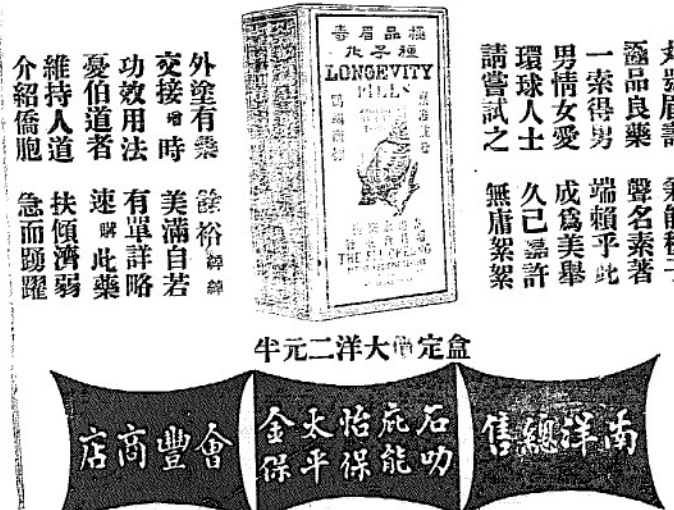 丸號眉壽 兼能種子
極品良藥 聲名素著
一索得男 端賴乎此
男情女愛 成爲美舉
環球人士 久已嘉許
請嘗試之 無庸絮絮
極品眉壽
種子丸
LONGEVITY
PILLS
外塗有藥 餘裕綽綽
交接增時 美滿自若
功效用法 有單詳略
憂伯道者 速購此藥
維持人道 扶傾濟弱
介紹僑胞 急而踴躍
盒定價大洋二元半
南洋總售
石叻
庇能
怡保
太平
金保
會豐商店